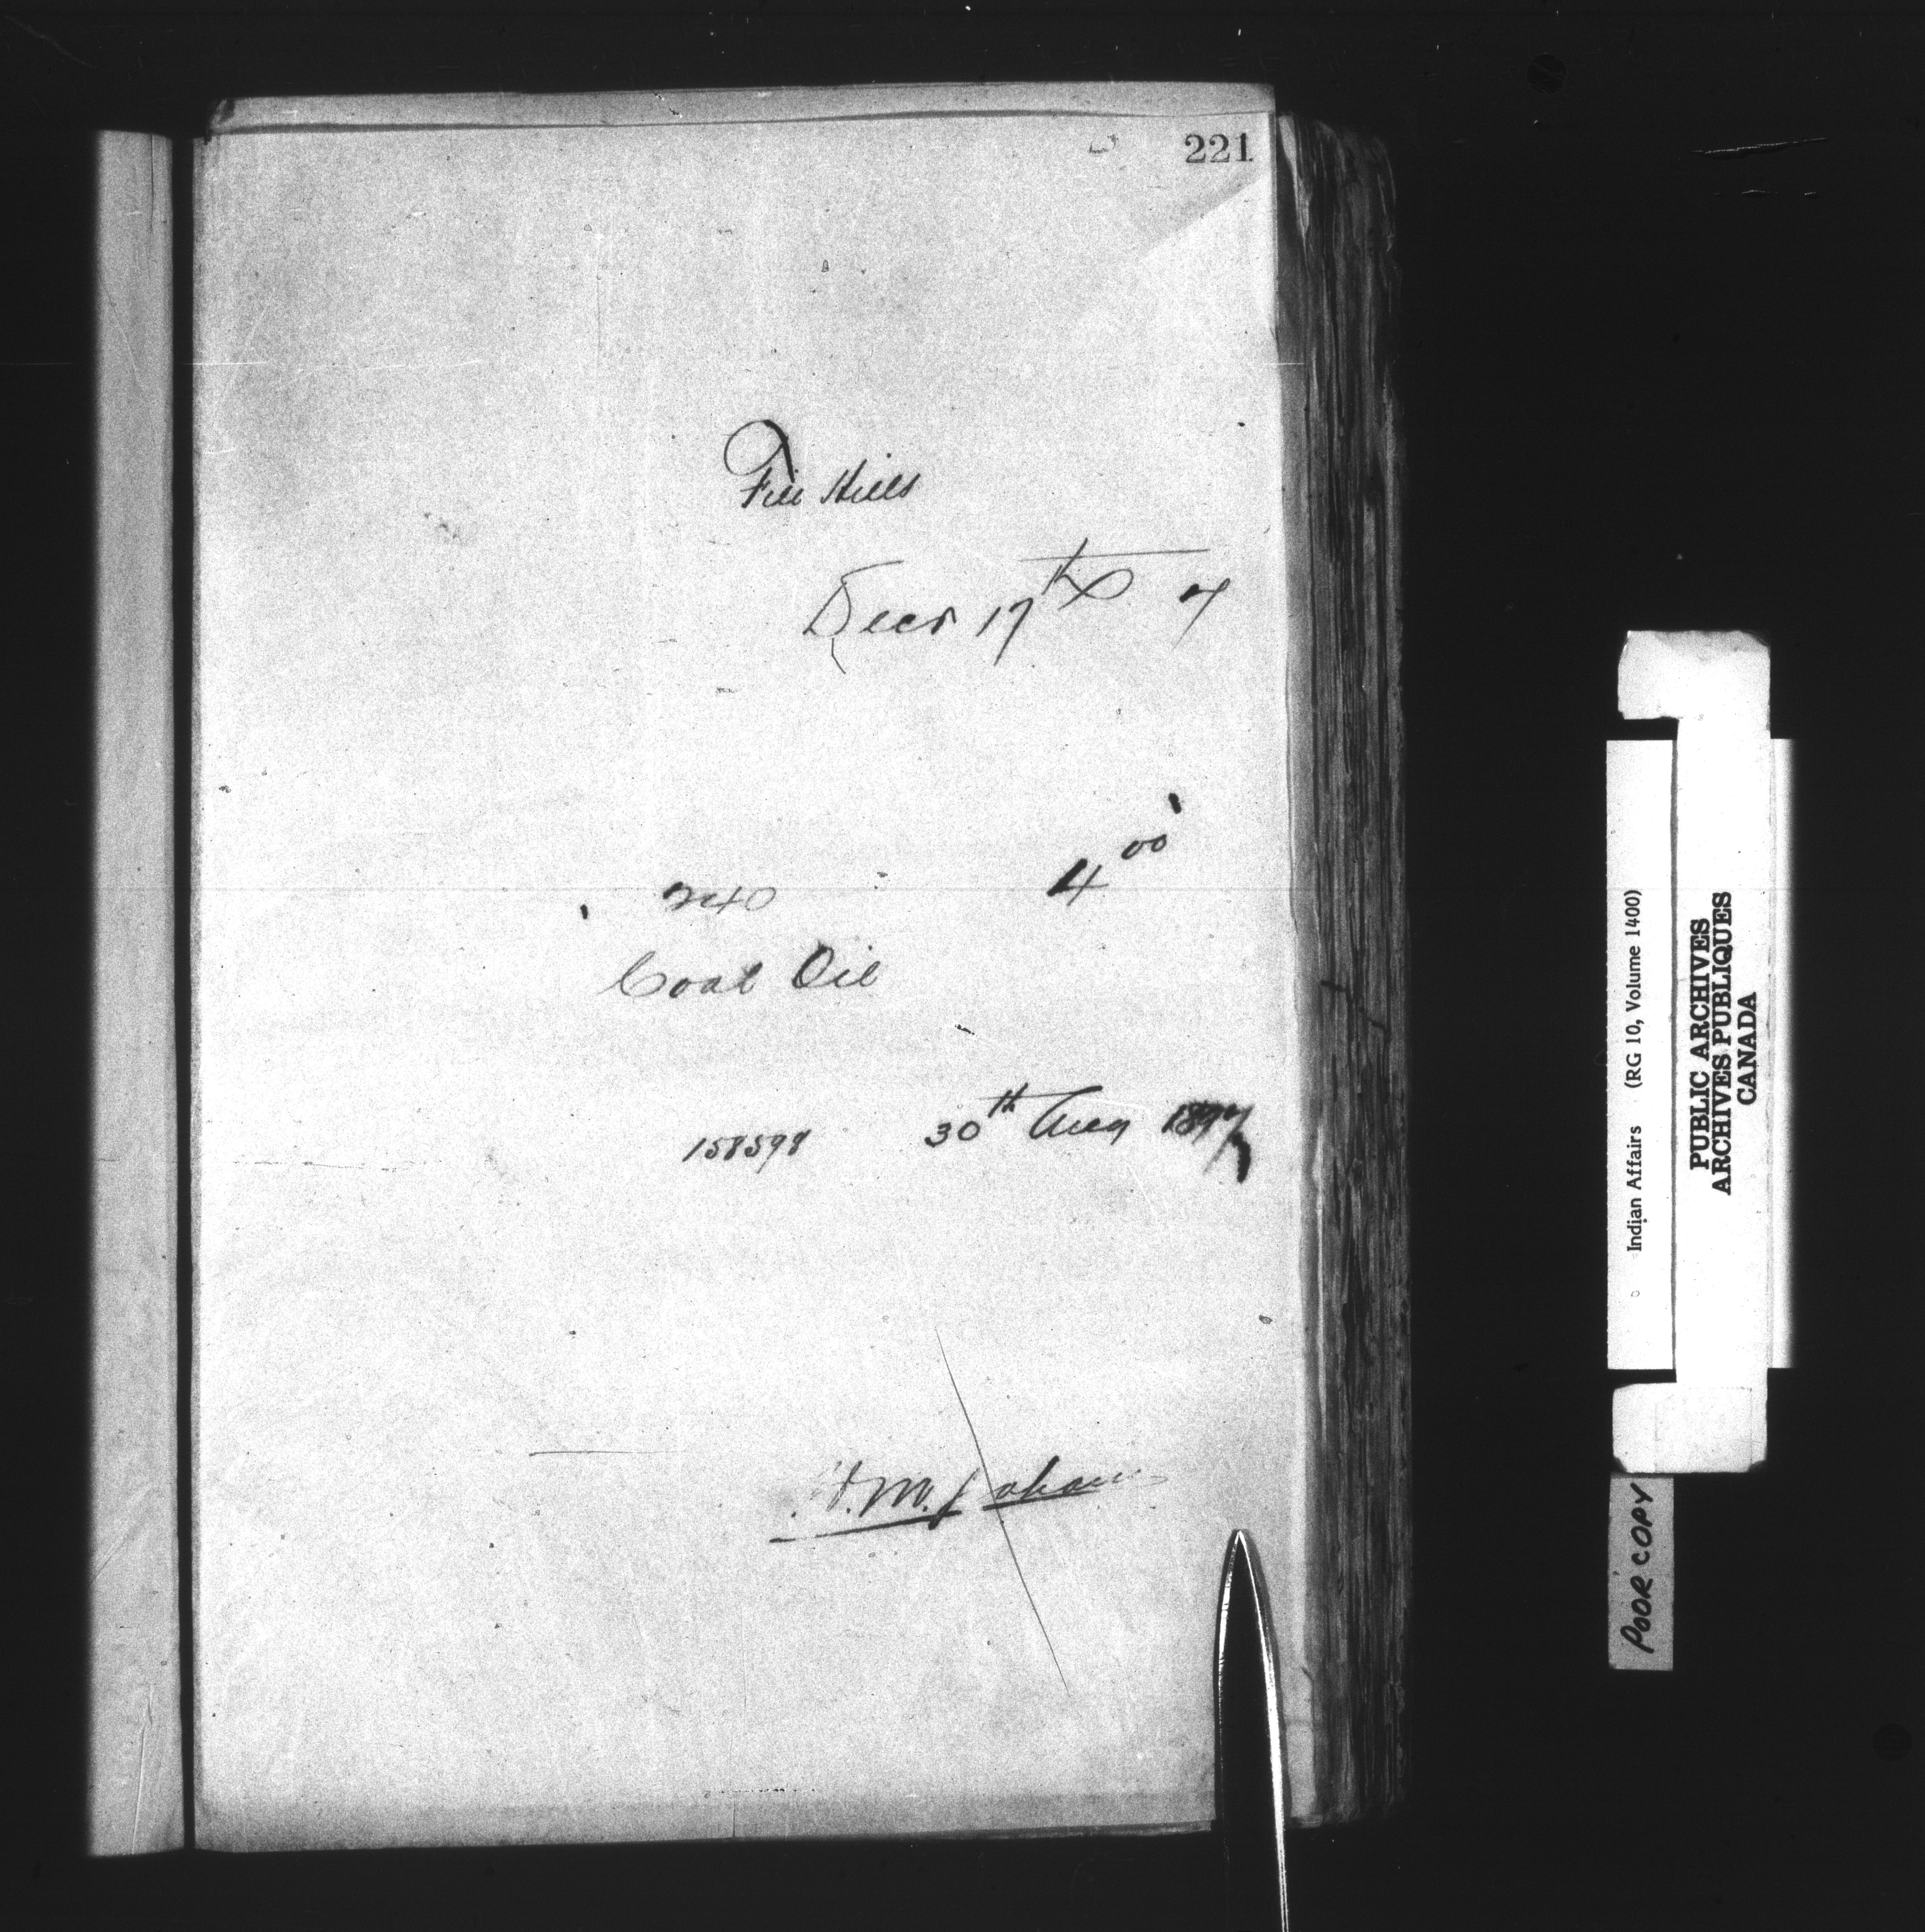 221
File Hills
Decr 17th 7
240 4 00
Coal Oil
158598 30th Aug 1897
Indian Affairs (RG 10, Volume 1400)
PUBLIC ARCHIVES
ARCHIVES PUBLIQUES
CANADA
POOR COPY